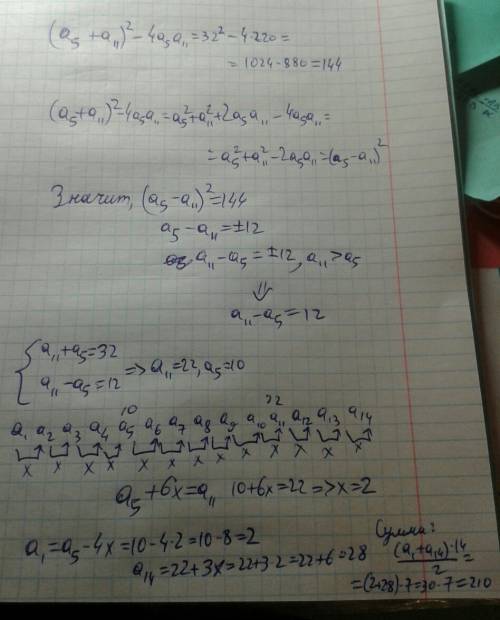 (a₅ + a₁₁)² - 4a₅a₁₁ = 32² - 4·220 =
= 1024 - 880 = 144
(a₅+a₁₁)² - 4a₅a₁₁ = a₅² + a₁₁² + 2a₅a₁₁ - 4a₅a₁₁ =
= a₅² + a₁₁² - 2a₅a₁₁ = (a₅ - a₁₁)²
Значит, (a₅ - a₁₁)² = 144
a₅ - a₁₁ = ±12
a₁₁ - a₅ = ±12, a₁₁ > a₅
⇓
a₁₁ - a₅ = 12
{ a₁₁ + a₅ = 32
a₁₁ - a₅ = 12 => a₁₁ = 22, a₅ = 10
10 22
a₁ a₂ a₃ a₄ a₅ a₆ a₇ a₈ a₉ a₁₀ a₁₁ a₁₂ a₁₃ a₁₄
x x x x x x x x x x x x x
a₅ + 6x = a₁₁ 10 + 6x = 22 => x = 2
a₁ = a₅ - 4x = 10 - 4·2 = 10 - 8 = 2
a₁₄ = 22 + 3x = 22 + 3·2 = 22 + 6 = 28
Сумма:
(a₁ + a₁₄)·14 / 2 =
= (2+28)·7 = 30·7 = 210